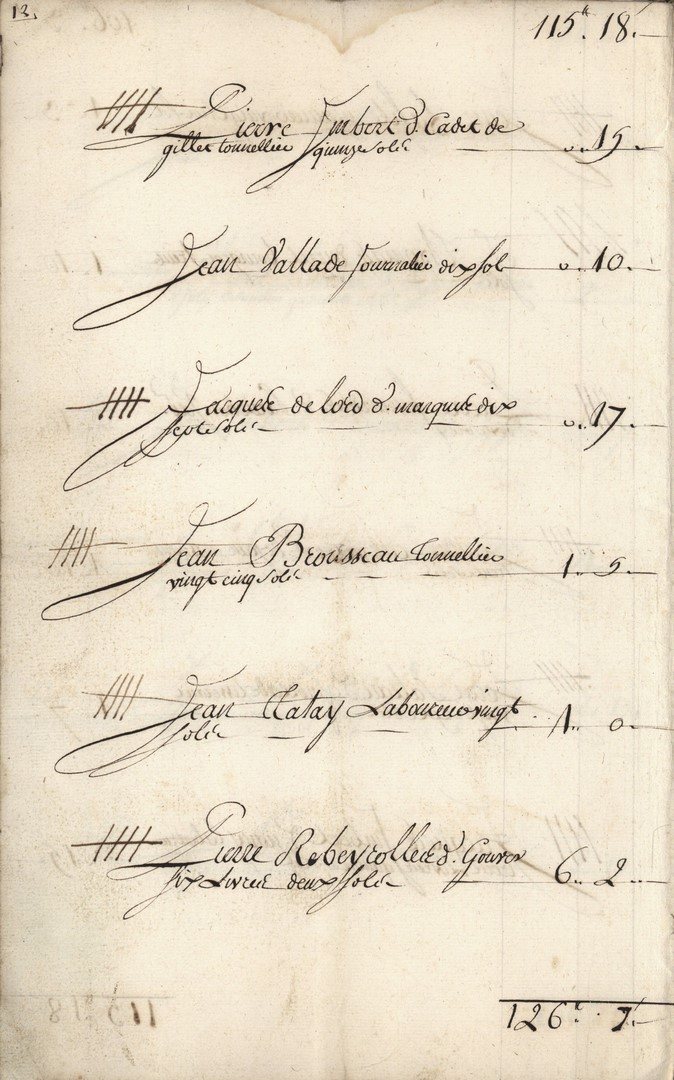 12.
115ᵗᵗ. 18.
Pierre Imbert d. Cadet de
gillet tonnellier quinze solz o.. 15.
Jean Vallade Journalier dix sols o.. 10.
Jacques delord d. marquis dix
sept solz o.. 17
Jean Brousseau tonnellier
vingt cinq solz 1.. 5.
Jean Catay Laboureur vingt
solz 1.. 0.
Pierre Rebeyrolle d. Gouver
six Livres deux solz 6.. 2..
126ᵗᵗ. 7.